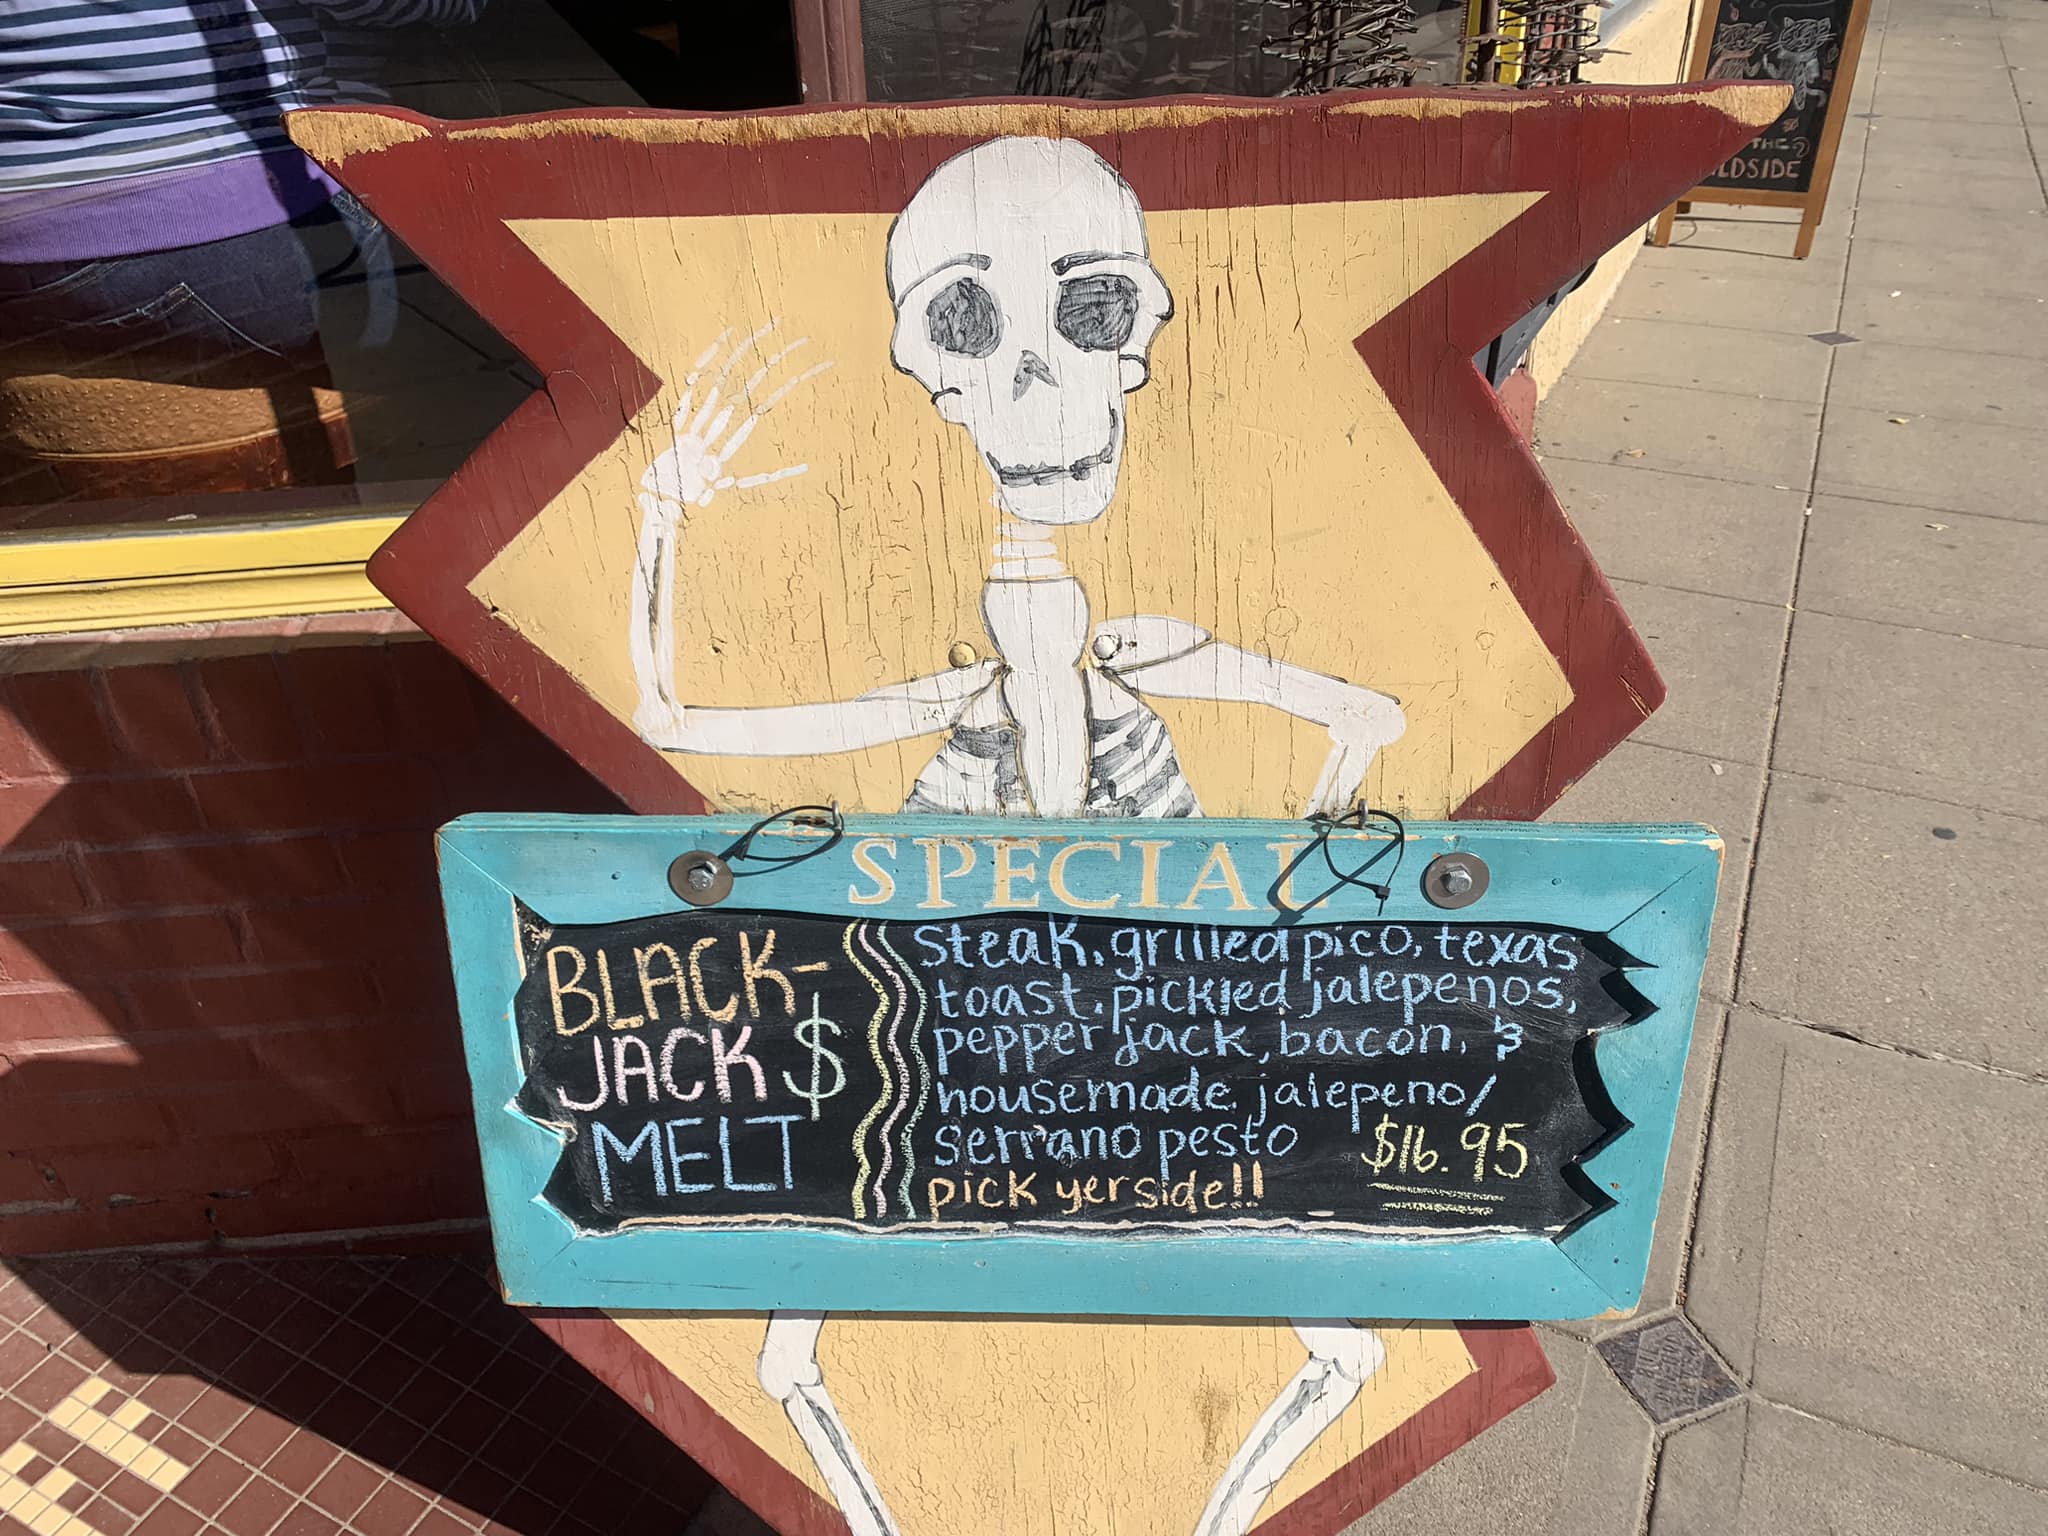 THE
SPECIAL
BLACK-
JACK $
MELT
steak, grilled pico, texas
toast, pickled jalepenos,
pepper jack, bacon, &
housemade jalepeno/
serrano pesto
pick yer side!!
$16.95